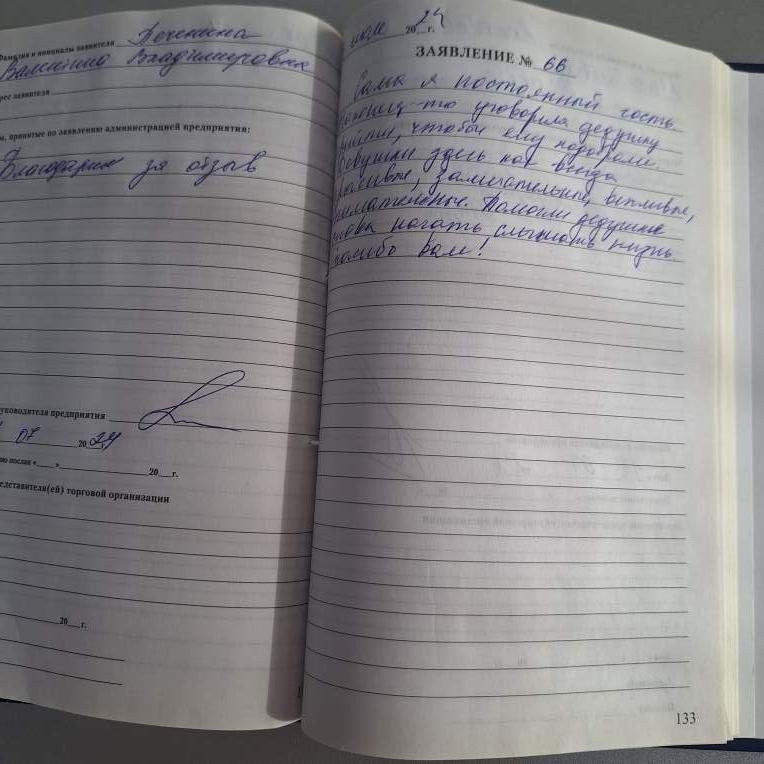 Фамилия и инициалы заявителя Печенкина
Валентина Владимировна
рес заявителя
ы, принятые по заявлению администрацией предприятия:
Благодарим за отзыв
уководителя предприятия
07 2024
ю послан « » 20 г.
едставителя(ей) торговой организации
20 г.
июля 2024 г.
ЗАЯВЛЕНИЕ № 66
Сама я постоянный гость.
-то уговорила дедушку
чтобы ему подобрали.
Девушки здесь как всегда
замечательные, вежливые,
внимательные. Помогли дедушке
снова начать слышать жизнь.
Спасибо вам!
133